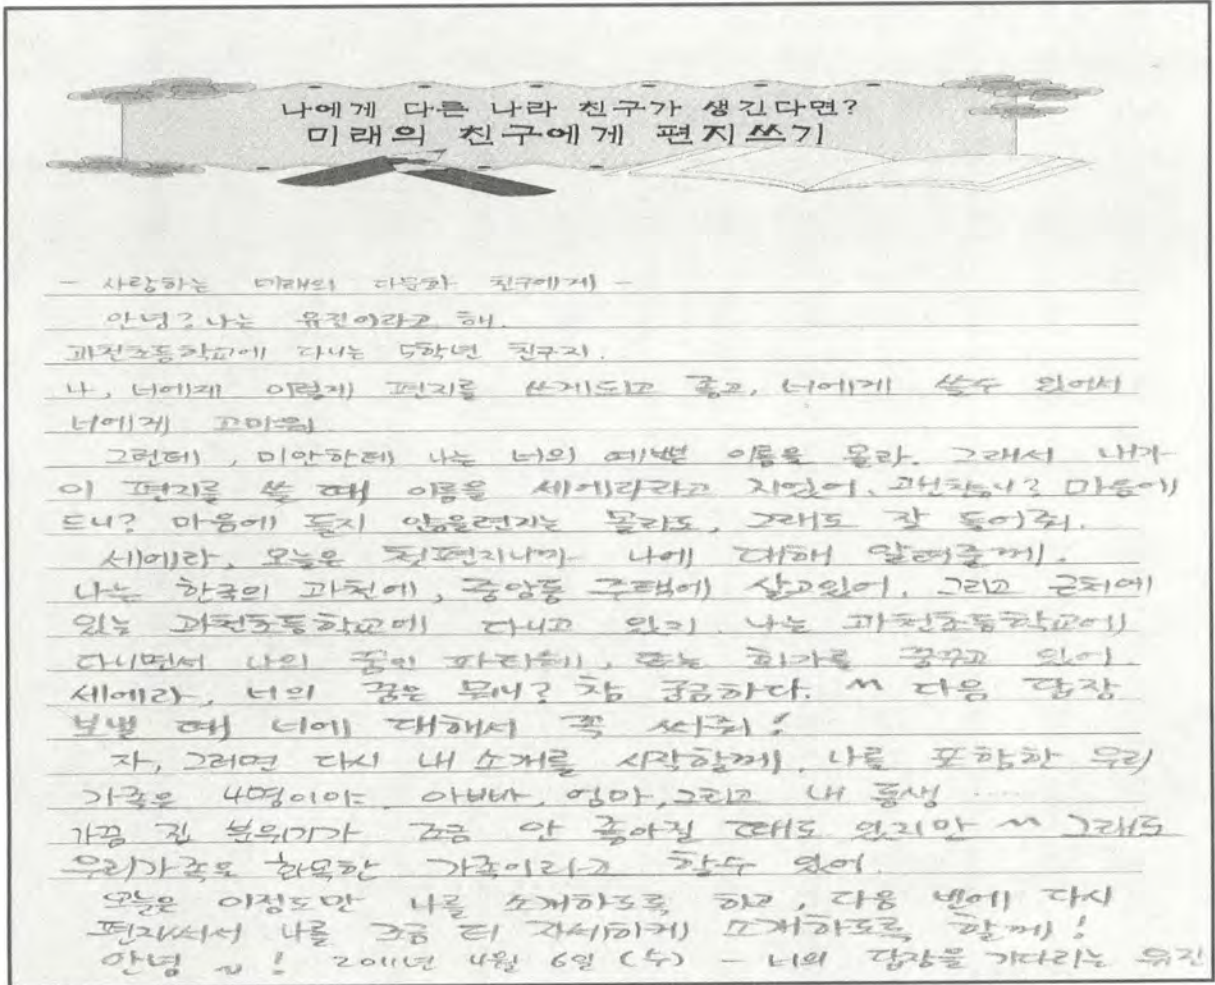 나에게 다른 나라 친구가 생긴다면?
미래의 친구에게 편지쓰기
- 사랑하는 미래의 다문화 친구에게 -
안녕? 나는 유진이라고 해.
과천초등학교에 다니는 5학년 친구지.
나, 너에게 이렇게 편지를 쓰게되고 좋고, 너에게 쓸수 있어서
너에게 고마워
그런데, 미안한데 나는 너의 예쁜 이름을 몰라. 그래서 내가
이 편지를 쓸 때 이름을 세에라라고 지었어. 괜찮니? 마음에
드니? 마음에 들지 않을런지는 몰라도, 그래도 잘 들어줘.
세에라, 오늘은 첫편지니까 나에 대해 알려줄께.
나는 한국의 과천에, 중앙동 주택에 살고있어. 그리고 근처에
있는 과천초등학교에 다니고 있지. 나는 과천초등학교에
다니면서 나의 꿈인 파티쉐, 또는 화가를 꿈꾸고 있어.
세에라, 너의 꿈은 뭐니? 참 궁금하다. ^^ 다음 답장
보낼 때 너에 대해서 꼭 써줘!
자, 그러면 다시 내 소개를 시작할께. 나를 포함한 우리
가족은 4명이야. 아빠, 엄마, 그리고 내 동생 ....
가끔 집 분위기가 조금 안 좋아질 때도 있지만 ^^ 그래도
우리가족은 화목한 가족이라고 할수 있어.
오늘은 이정도만 나를 소개하도록 하고, 다음 번에 다시
편지써서 나를 조금 더 자세하게 소개하도록 할께!
안녕 ~! 2011년 4월 6일 (수) - 너의 답장을 기다리는 유진